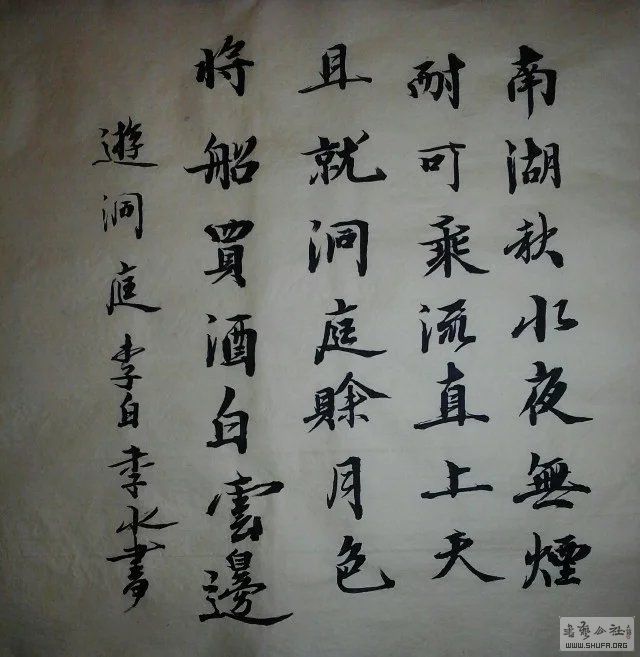 南湖秋水夜無煙
耐可乘流直上天
且就洞庭賖月色
將船買酒白雲邊
遊洞庭李白李水書
書藝公社
WWW.SHUFA.ORG